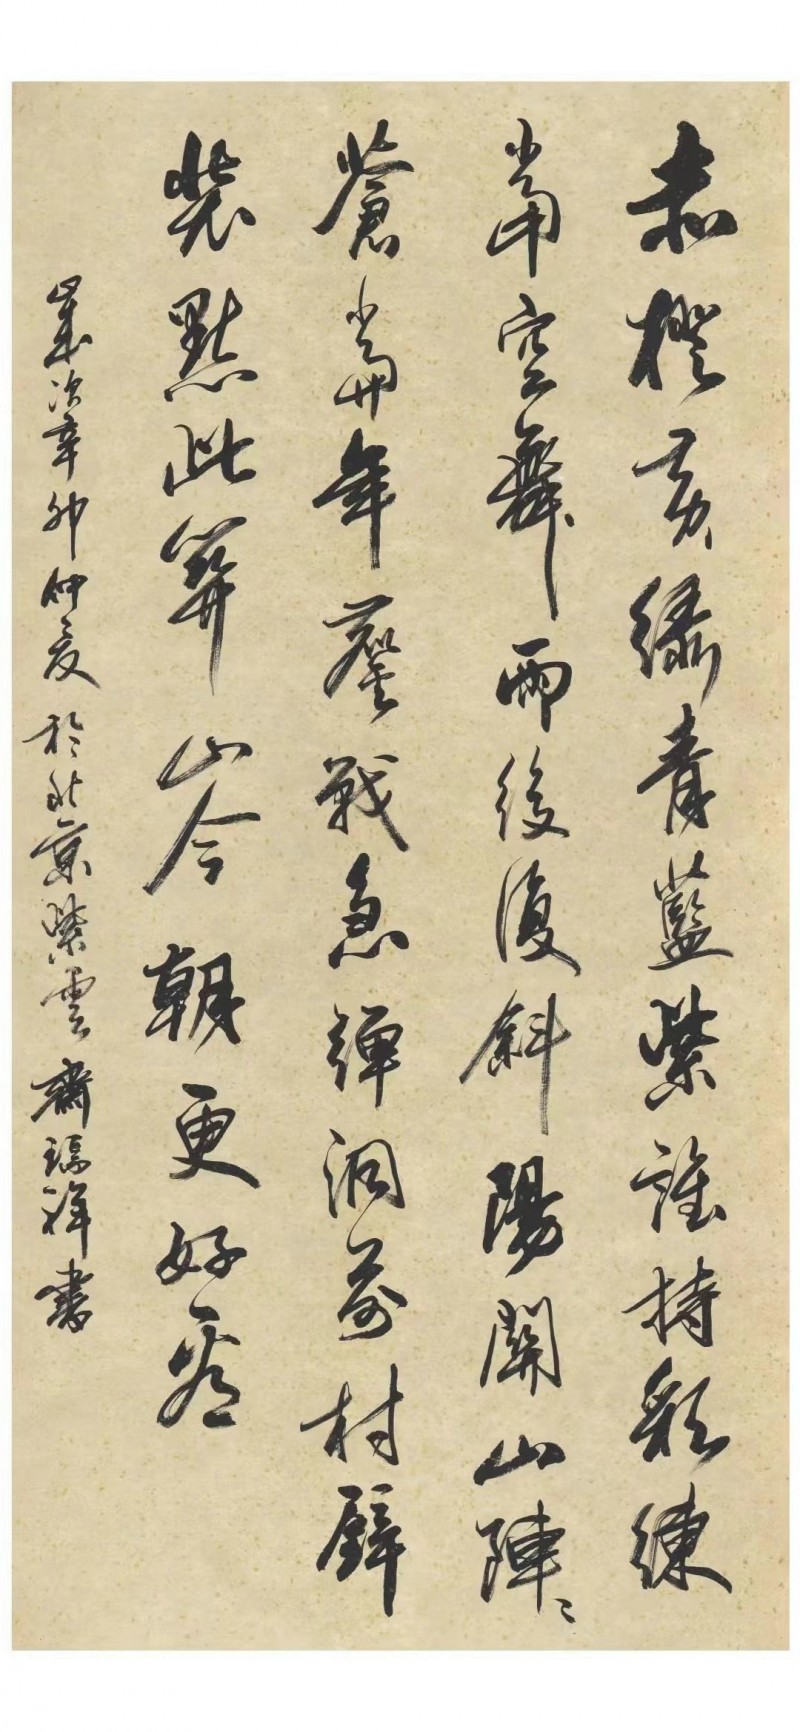 赤橙黃綠青藍紫誰持彩練
當空舞雨後復斜陽關山陣〻
蒼當年鏖戰急彈洞前村壁
裝點此關山今朝更好看
歲次辛卯仲夏於北京紫雲齋瑞祥書